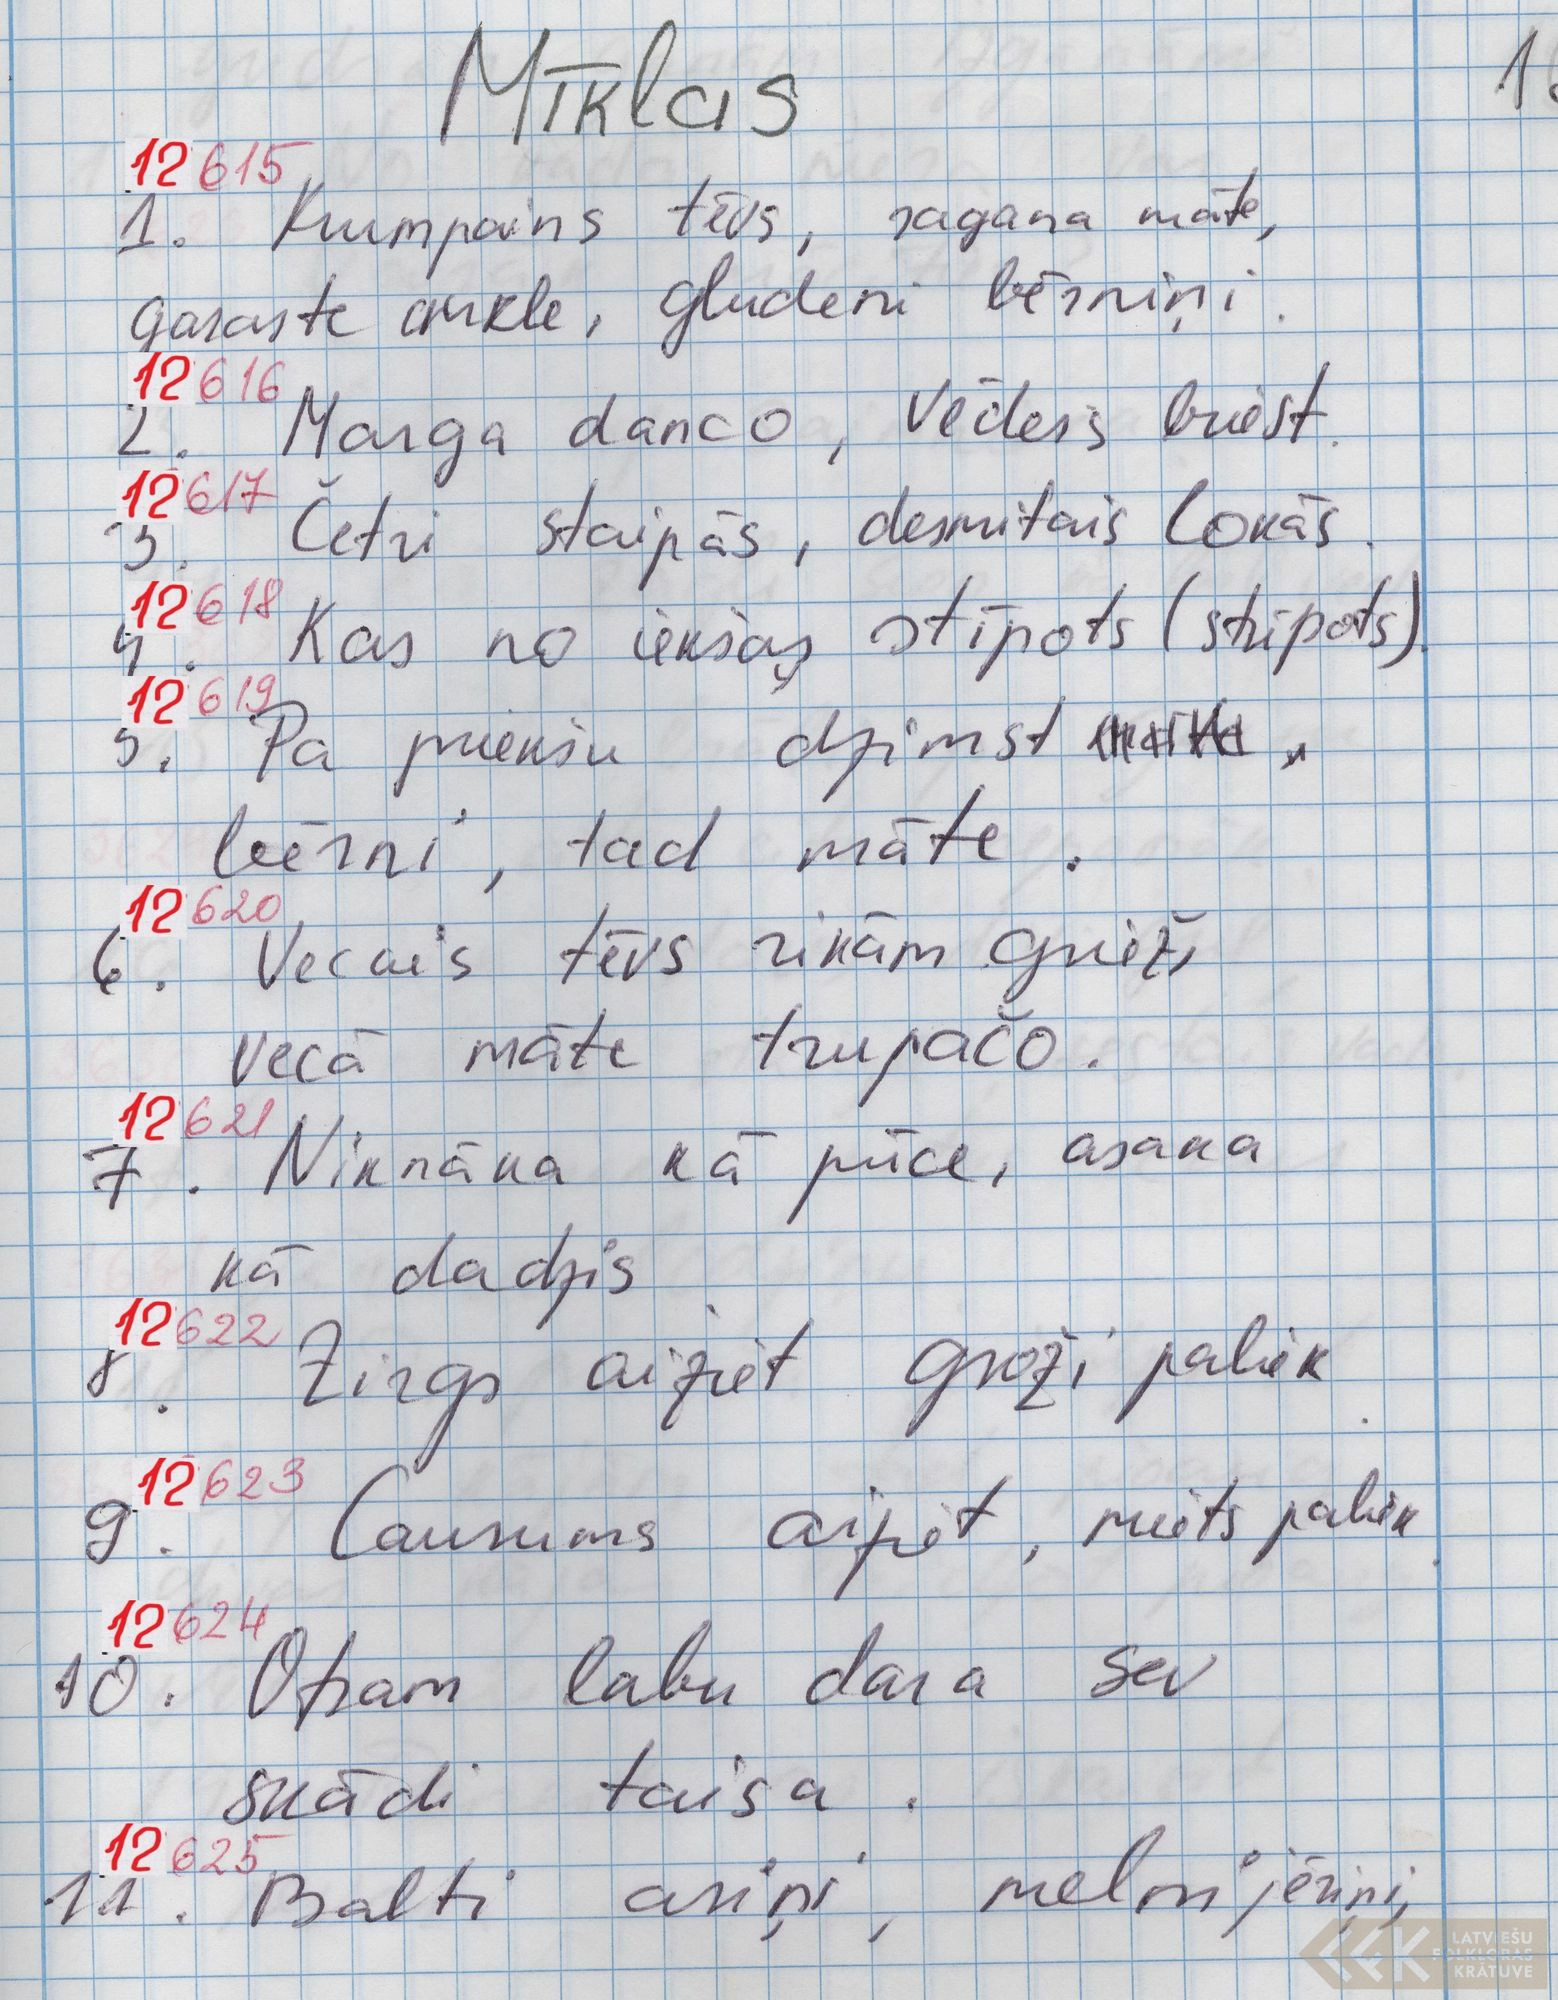 Mīklas
1
12615
1. Kumpains tēvs, ragana māte,
garaste aukle, gludeni bērniņi.
12616
2. Marga danco, vēders briest.
12617
3. Četri staipās, desmitais lokās.
12618
4. Kas no iekšas stīpots (strīpots).
12619
5. Pa priekšu dzimst
bērni, tad māte.
12620
6. Vecais tēvs rikām griež,
vecā māte trupačo.
12621
7. Niknāka kā pūce, asaka
kā dadzis
12622
8. Zirgs aiziet groži paliek.
12623
9. Caurums aiziet, miets paliek.
12624
10. Otram labu dara sev
skādi taisa.
12625
11. Balti ariņi, melni jēriņi,
LATVIEŠU
FOLKLORAS
KRĀTUVE